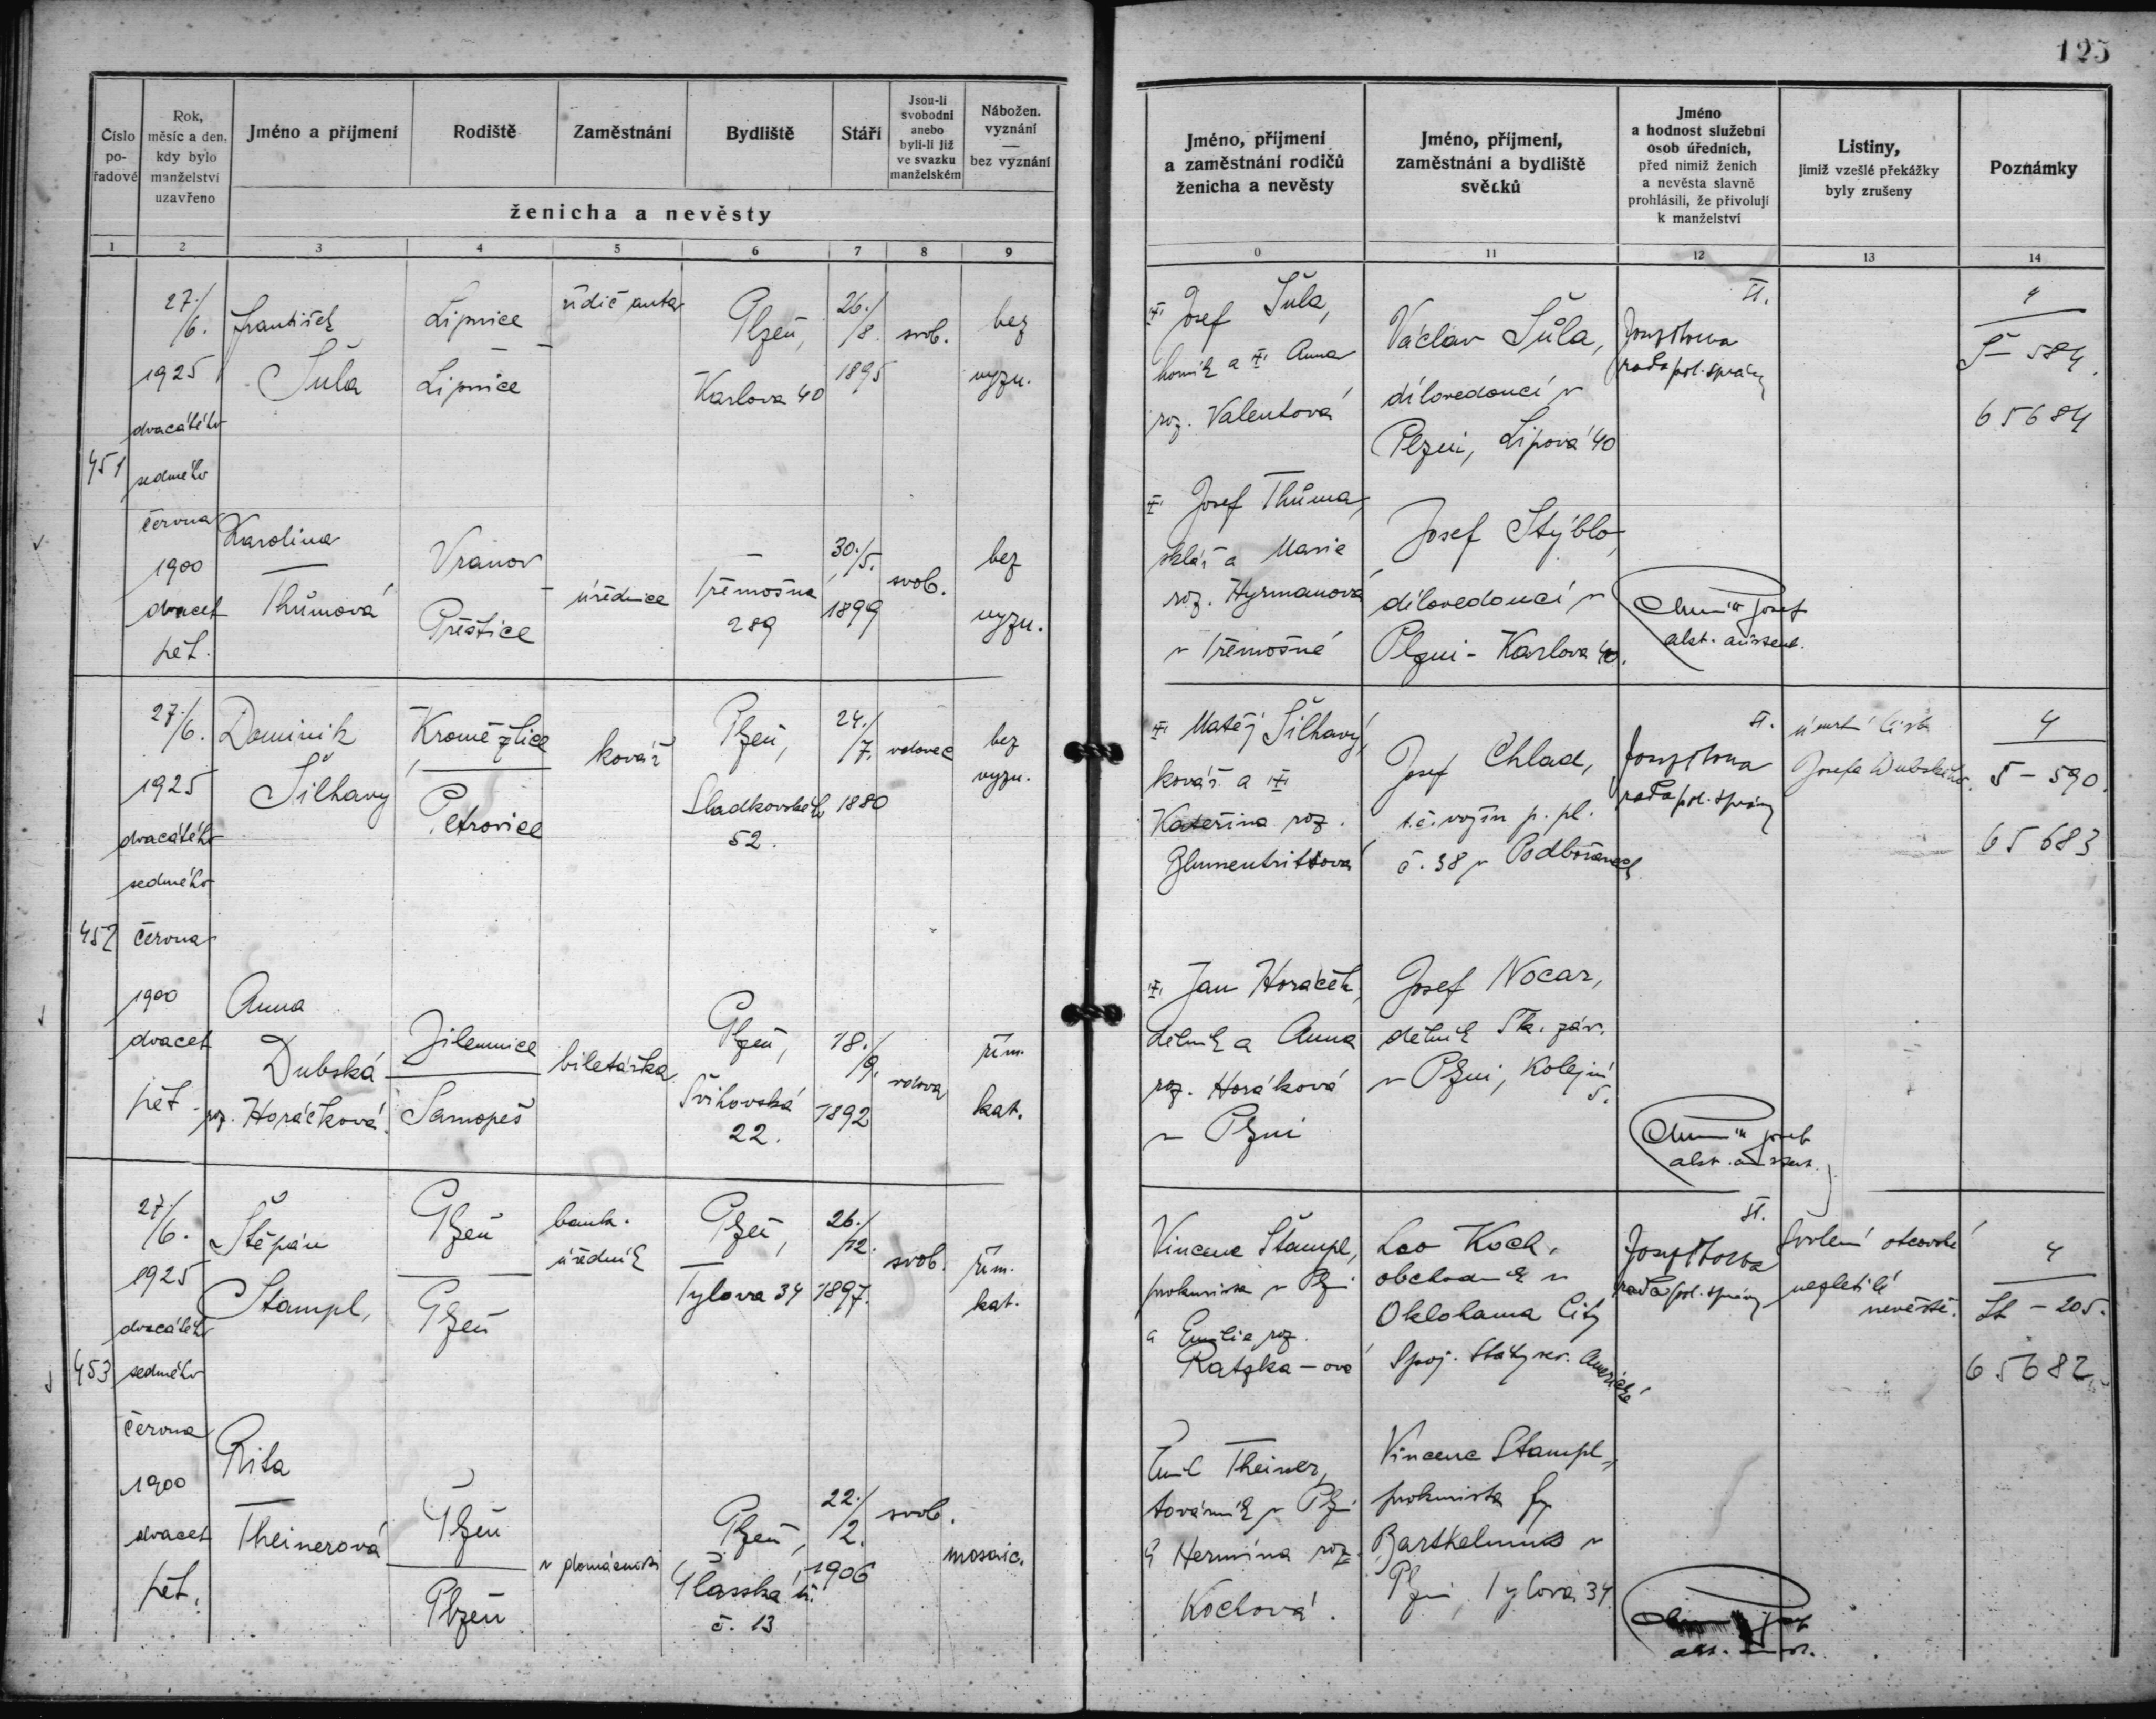 125
Číslo
po-
řadové
Rok,
měsíc a den,
kdy bylo
manželství
uzavřeno
Jméno a příjmení
Rodiště
Zaměstnání
Bydliště
Stáří
Jsou-li
svobodni
anebo
byli-li již
ve svazku
manželském
Nábožen.
vyznání
—
bez vyznání
ženicha a nevěsty
1 2 3 4 5 6 7 8 9
Jméno, příjmení
a zaměstnání rodičů
ženicha a nevěsty
Jméno, příjmení,
zaměstnání a bydliště
svědků
Jméno
a hodnost služební
osob úředních,
před nimiž ženich
a nevěsta slavně
prohlásili, že přivolují
k manželství
Listiny,
jimiž vzešlé překážky
byly zrušeny
Poznámky
0 11 12 13 14
451
27./6.
1925
dvacátého
sedmého
června
1900
dvacet
pět.
František
Šula
Lipnice
Lipnice
řidič auta
Plzeň,
Karlova 40
26./8.
1895
svob.
bez
vyzn.
Josef Šula,
horník a Anna
roz. Valentová
Václav Šůla,
dílovedoucí v
Plzni, Lipová 40
rada pol. správy
4
Š-584.
65684
Karolina
Thůmová
Vranov
Přeštice
úřednice
Třemošna
289
30./5.
1899
svob.
bez
vyzn.
Josef Thůma,
sklář a Marie
roz. Hyrmanová
v Třemošné
Josef Stýblo,
dílovedoucí v
Plzni - Karlova 40.
Josef
452
27./6.
1925
dvacátého
sedmého
června
1900
dvacet
pět.
Dominik
Šilhavy
Kroměžlice
Petrovice
kovář
Plzeň,
Sladkovského
52.
24./7.
1880
vdovec
bez
vyzn.
Matěj Šilhavý,
kovář a
Kateřina roz.
Blumentrittová
Josef Chlad,
t.č. vojín p. pl.
č. 38 v Podbořanech
rada pol. správy
úmrtní list
Josefa Dubského.
4
Š-590.
65683
Anna
Dubská
roz. Horáčková.
Jilemnice
Samopeš
biletářka
Plzeň,
Švihovská
22.
18./9.
1892
vdova
řím.
kat.
Jan Horáček,
dělník a Anna
roz. Horáková
v Plzni
Josef Nocar,
dělník Šk. záv.
v Plzni, Kolejní
5.
Josef
453
27./6.
1925
dvacátého
sedmého
června
1900
dvacet
pět.
Štěpán
Stampl,
Plzeň
Plzeň
bank.
úředník
Plzeň,
Tylova 34
26./12.
1897.
svob.
řím.
kat.
Vincenc Štampl,
prokurista v Plzni
a Emilie roz.
Ratzka-ová
Leo Koch,
obchodník v
Oklohama City
Spoj. Státy sev. Americké
rada pol. správy
Svolení otcovské
nezletilé
nevěstě.
4
St-205.
65682
Rita
Theinerová
Plzeň
Plzeň
v domácnosti
Plzeň,
č. 13
22./2.
1906
svob.
mosaic.
Emil Theiner,
továrník v Plzni
a Hermína roz.
Kochová.
Vincenc Stampl,
prokurista fy
Barthelmus v
Plzni, Tylova 34